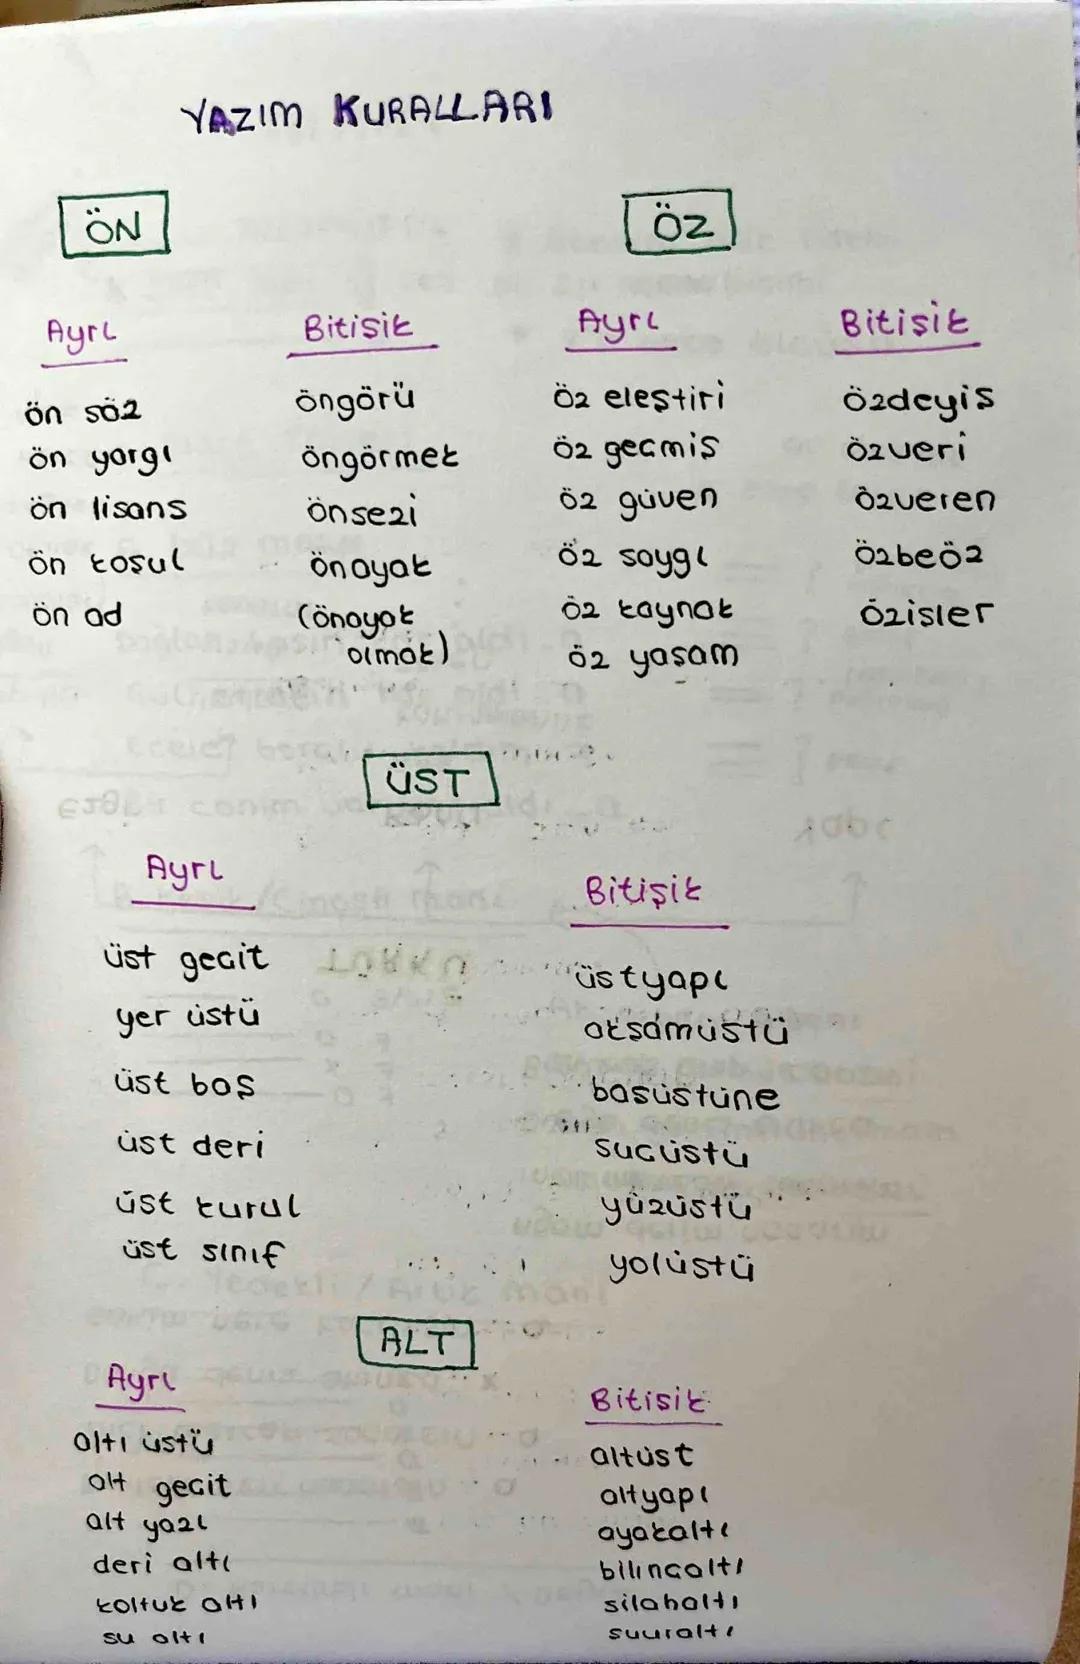 YAZIM KURALLARI
ÖN
Ayrı
ön söz
ön yargı
ön lisans
ön koşul
ön ad
Bitişik
öngörü
öngörmek
önsezi
önayak
(önayak
olmak)
ÖZ
Ayrı
öz eleştiri
öz geçmiş
öz güven
öz saygı
öz kaynak
öz yaşam
Bitişik
özdeyiş
özveri
özveren
özbeöz
özişler
ÜST
Ayrı
üst geçit
yer üstü
üst baş
üst deri
üst kurul
üst sınıf
Bitişik
üstyapı
akşamüstü
başüstüne
suçüstü
yüzüstü
yolüstü
ALT
Ayrı
altı üstü
alt geçit
alt yazı
deri altı
koltuk altı
su altı
Bitişik
altüst
altyapı
ayakaltı
bilinçaltı
silahaltı
şuuraltı